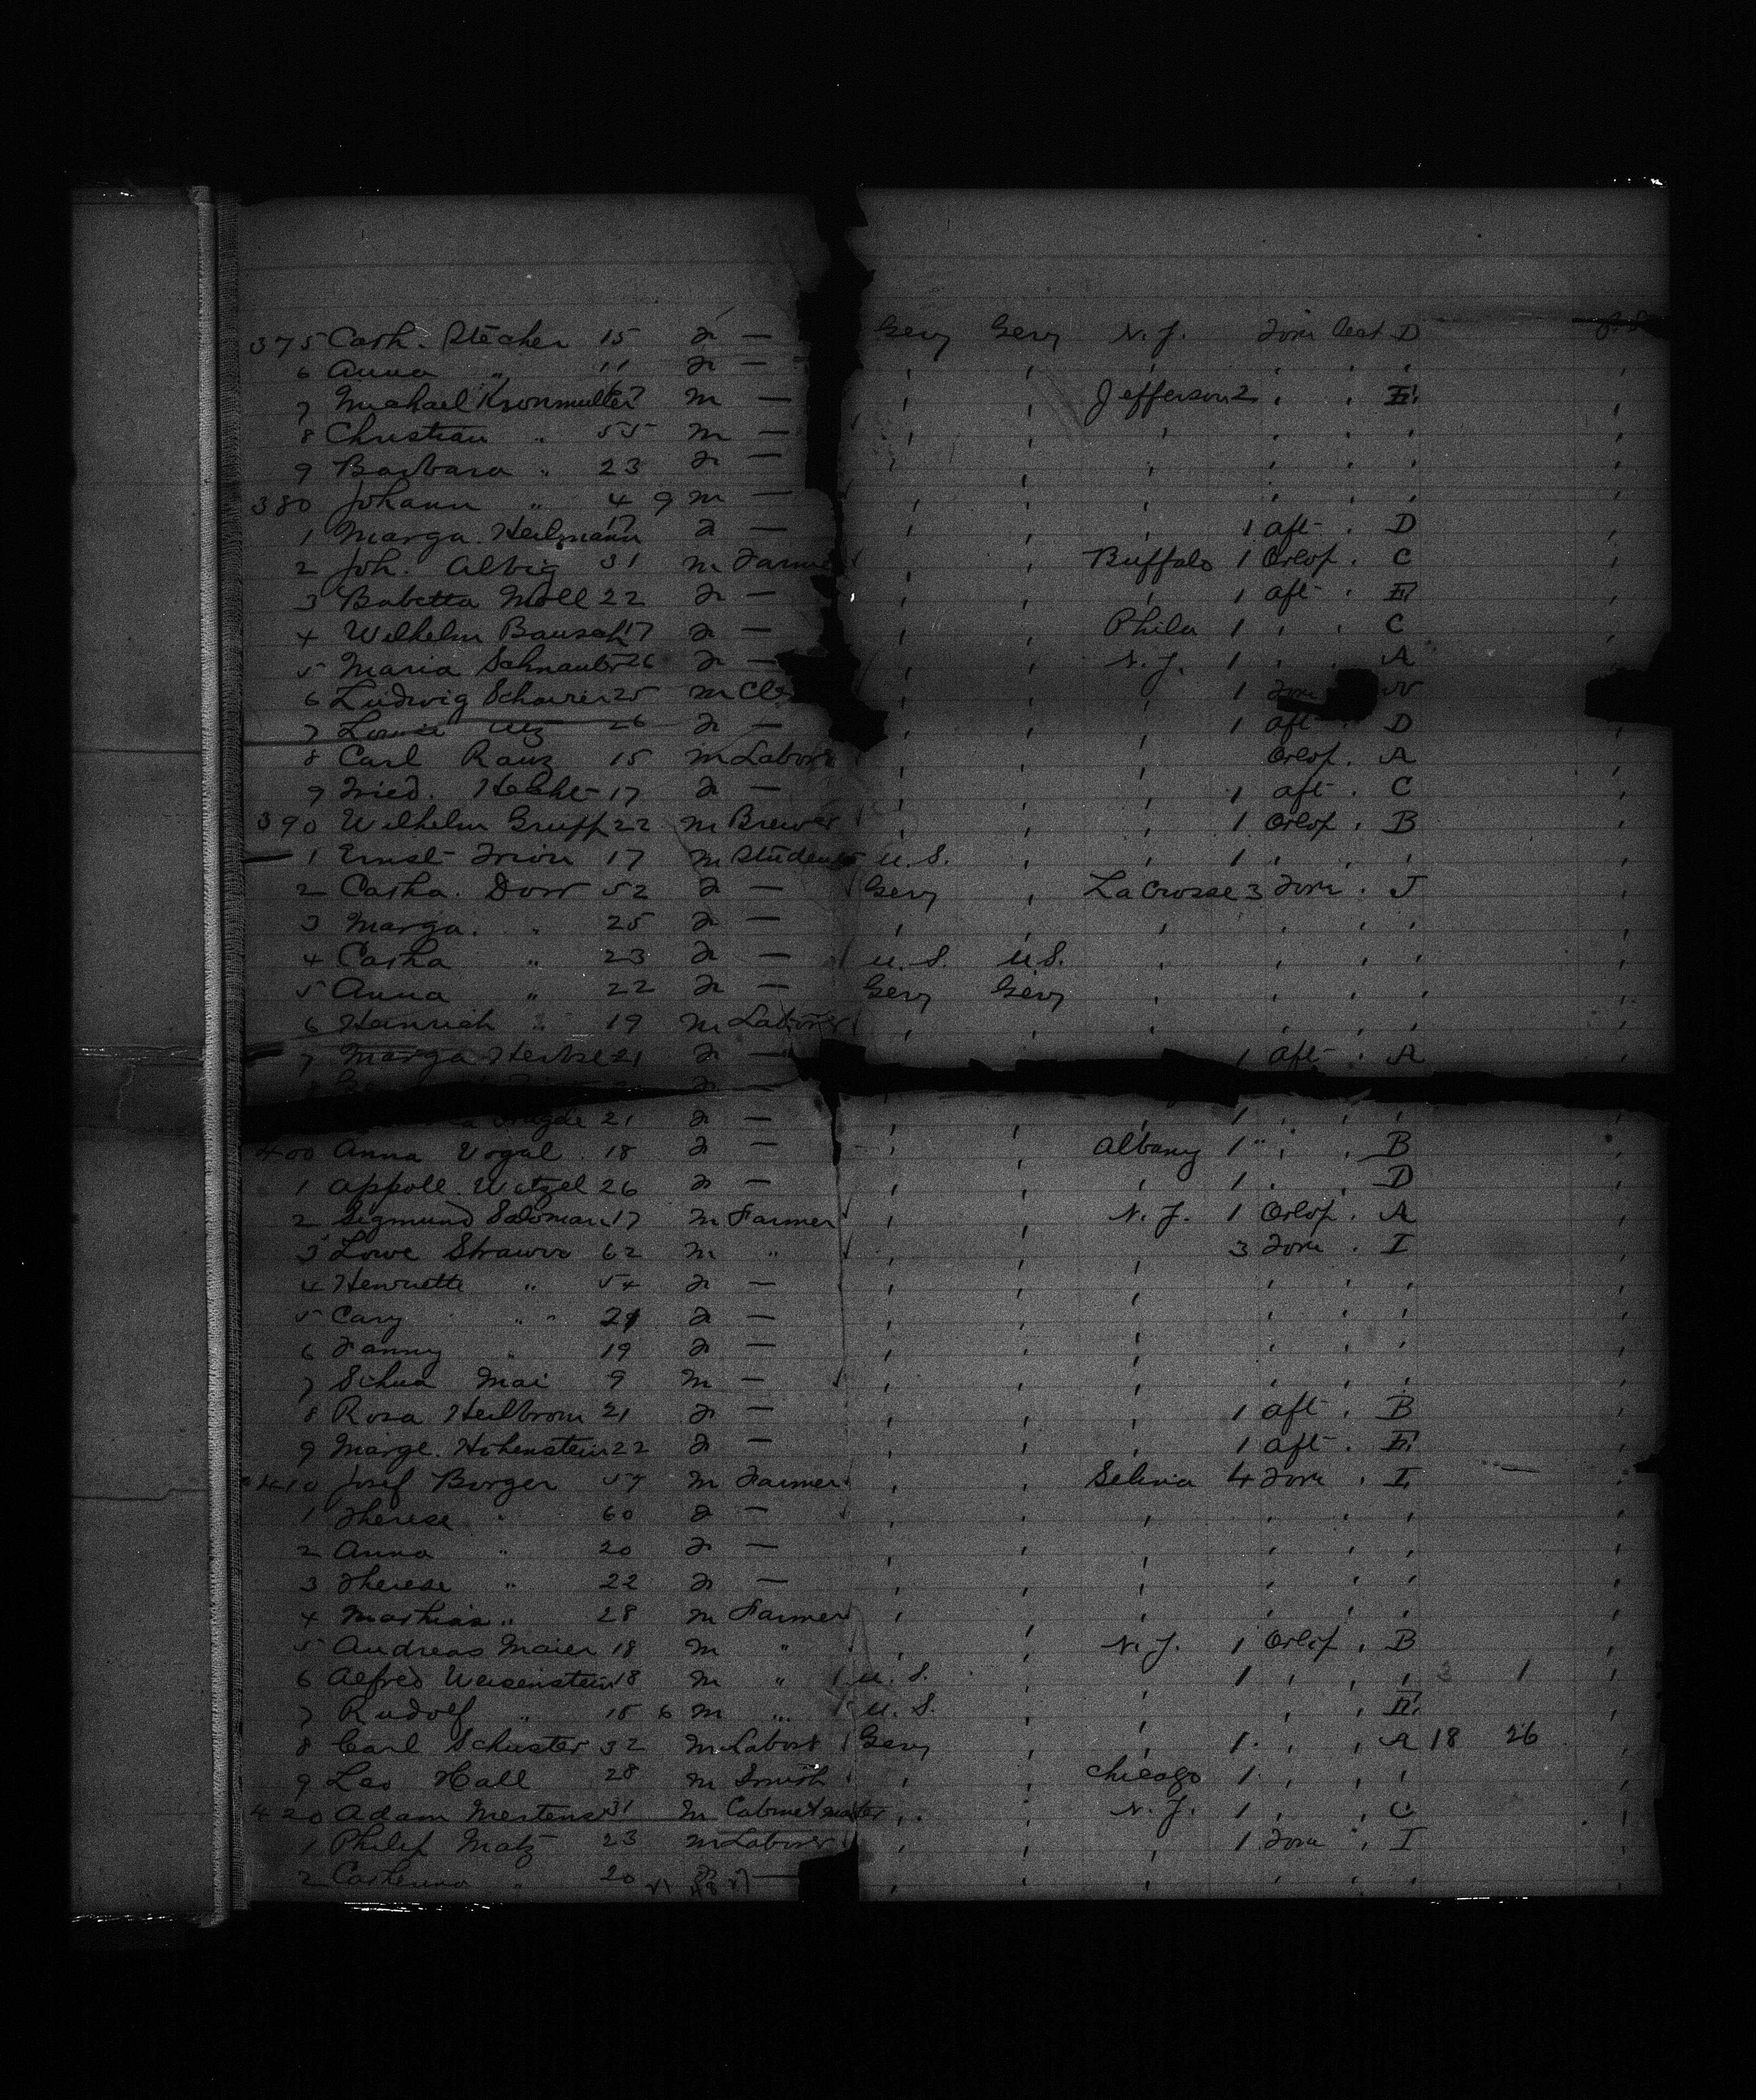 375 Cath. Stecher 15 F — Gery Gery N. J. Forw Deck D
6 Anna " 11 F — ' ' ' ' '
7 Michael Kronmuller 17 M — ' ' Jefferson 2 ' ' III
8 Christian " 55 M — ' ' ' ' ' ' '
9 Barbara " 23 F — ' ' ' ' ' ' '
380 Johann " 4 9 M — ' ' ' ' ' ' '
1 Marga. Heilmann 17 F — ' ' ' 1 aft ' D '
2 Joh. Albig 31 M Farmer ' ' Buffalo 1 Orlop ' C '
3 Babetta Moll 22 F — ' ' ' 1 aft ' III '
4 Wilhelm Bausch 17 F — ' ' Phila 1 ' ' C '
5 Maria Schnauber 26 F — ' ' N. J. 1 ' ' A
6 Ludwig Schaurer 25 M Cle ' ' ' 1 Forw IV
7 Louise Utz 26 F — ' ' ' 1 aft D '
8 Carl Ranz 15 M Labor ' ' ' Orlop. A '
9 Fried. Hecht 17 F — ' ' ' 1 aft ' C '
390 Wilhelm Gruff 22 M Brewer ' ' ' 1 Orlop ' B '
1 Ernst Trion 17 M Student U. S. ' ' 1 ' ' ' '
2 Catha. Dorr 52 F — Gery ' LaCrosse 3 Forw ' J '
3 Marga. " 25 F — ' ' ' ' ' ' '
4 Catha " 23 F — U. S. U.S. ' ' ' ' '
5 Anna " 22 F — Gery Gery ' ' ' ' '
6 Heinrich " 19 M Laborer ' ' ' ' ' ' '
7 Marga Herbse 21 F — 1 aft ' A '
8 F —
21 F — ' ' ' 1 ' ' '
400 Anna Vogal 18 F — ' ' Albany 1 " ' ' B
1 Appoll. Wetzel 26 F — ' ' ' 1 ' ' D
2 Sigmund Saloman 17 M Farmer ' ' N. J. 1 Orlop ' A '
3 Lowe Strauss 62 M " ' ' ' 3 Forw ' I '
4 Henriette " 54 F — ' ' ' ' ' ' '
5 Cary " " 21 F — ' ' ' ' ' ' '
6 Fanny " 19 F — ' ' ' ' ' ' '
7 Schua Mai 9 M — ' ' ' ' ' ' '
8 Rosa Heilbronn 21 F — ' ' ' 1 aft ' B '
9 Margl. Hohenstein 22 F — ' ' ' 1 aft ' III '
410 Josef Borger 57 M Farmer ' ' Selina 4 Forw ' I
1 Therese " 60 F — ' ' ' ' ' ' '
2 Anna " 20 F — ' ' ' ' ' ' '
3 Therese " 22 F — ' ' ' ' ' ' '
4 Mathias " 28 M Farmer ' ' ' ' ' ' '
5 Andreas Maier 18 M " ' ' N. J. 1 Orlop ' B '
6 Alfred Weisenstein 18 M " U. S. ' ' 1 ' ' ' 3 1 '
7 Rudolf " 15 6 M " U. S. ' ' ' ' III '
8 Carl Schuster 32 M Labor Gery ' ' 1 ' ' A 18 26
9 Leo Hall 28 M Smith ' ' Chicago 1 ' ' ' '
420 Adam Mertens 31 M Cabinetmaker ' ' N. J. 1 ' ' C '
1 Philip Matz 23 M Laborer ' ' ' 1 Forw ' I '
2 Catherina " 20 F — ' ' ' ' ' ' '